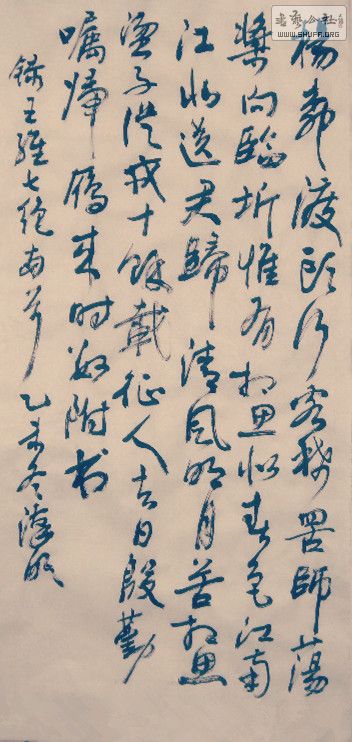 楊柳渡頭行客稀罟師蕩
槳向臨圻惟有相思似春色江南
江北送君歸清風明月苦相思
蕩子從戎十餘載征人去日殷勤
囑歸鴈來時數附書
錄王維七絕兩首 乙未冬
書藝公社
WWW.SHUFA.ORG